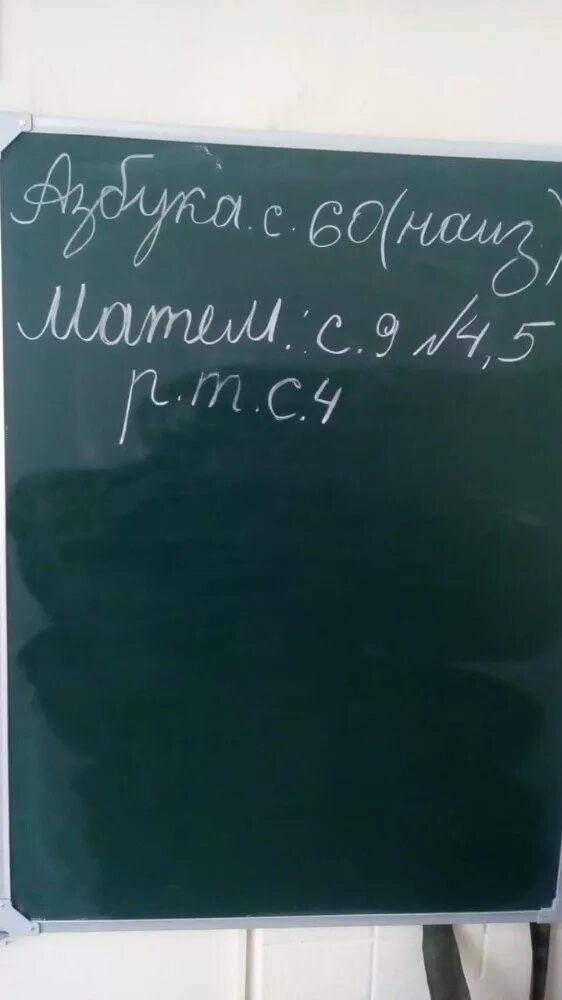 Азбука. с. 60 (наиз)
Матем.: с. 9 №4, 5
р. т. с. 4